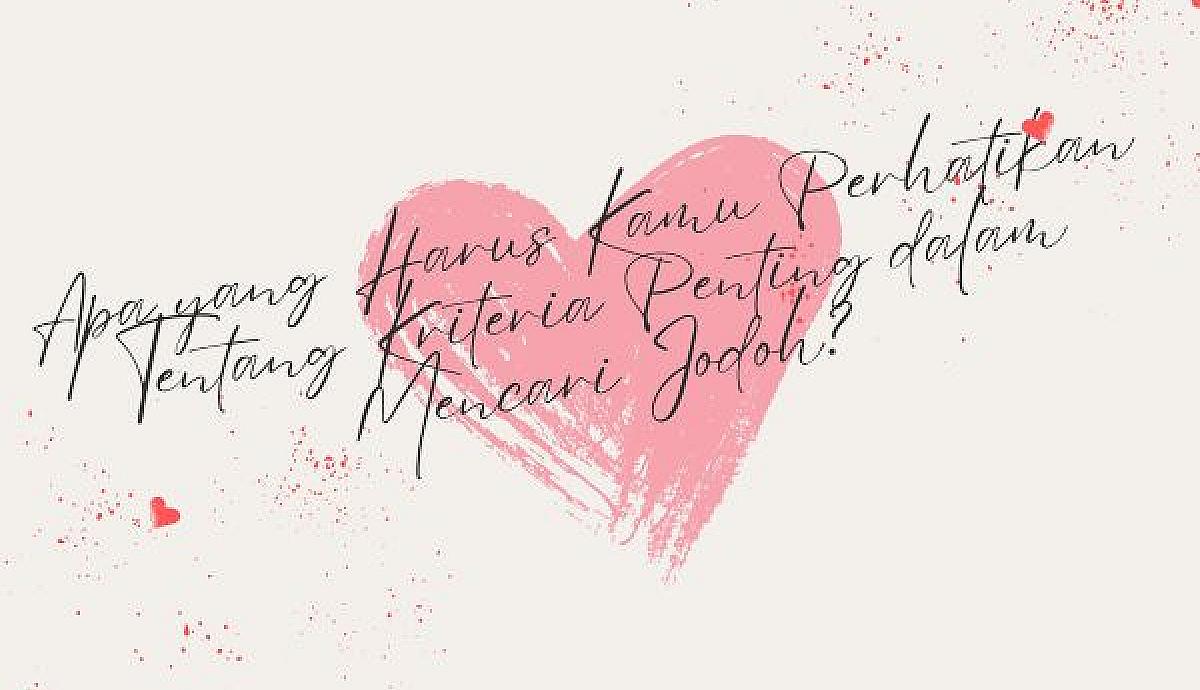 Apa yang Harus Kamu Perhatikan
Tentang Kriteria Penting dalam
Mencari Jodoh?